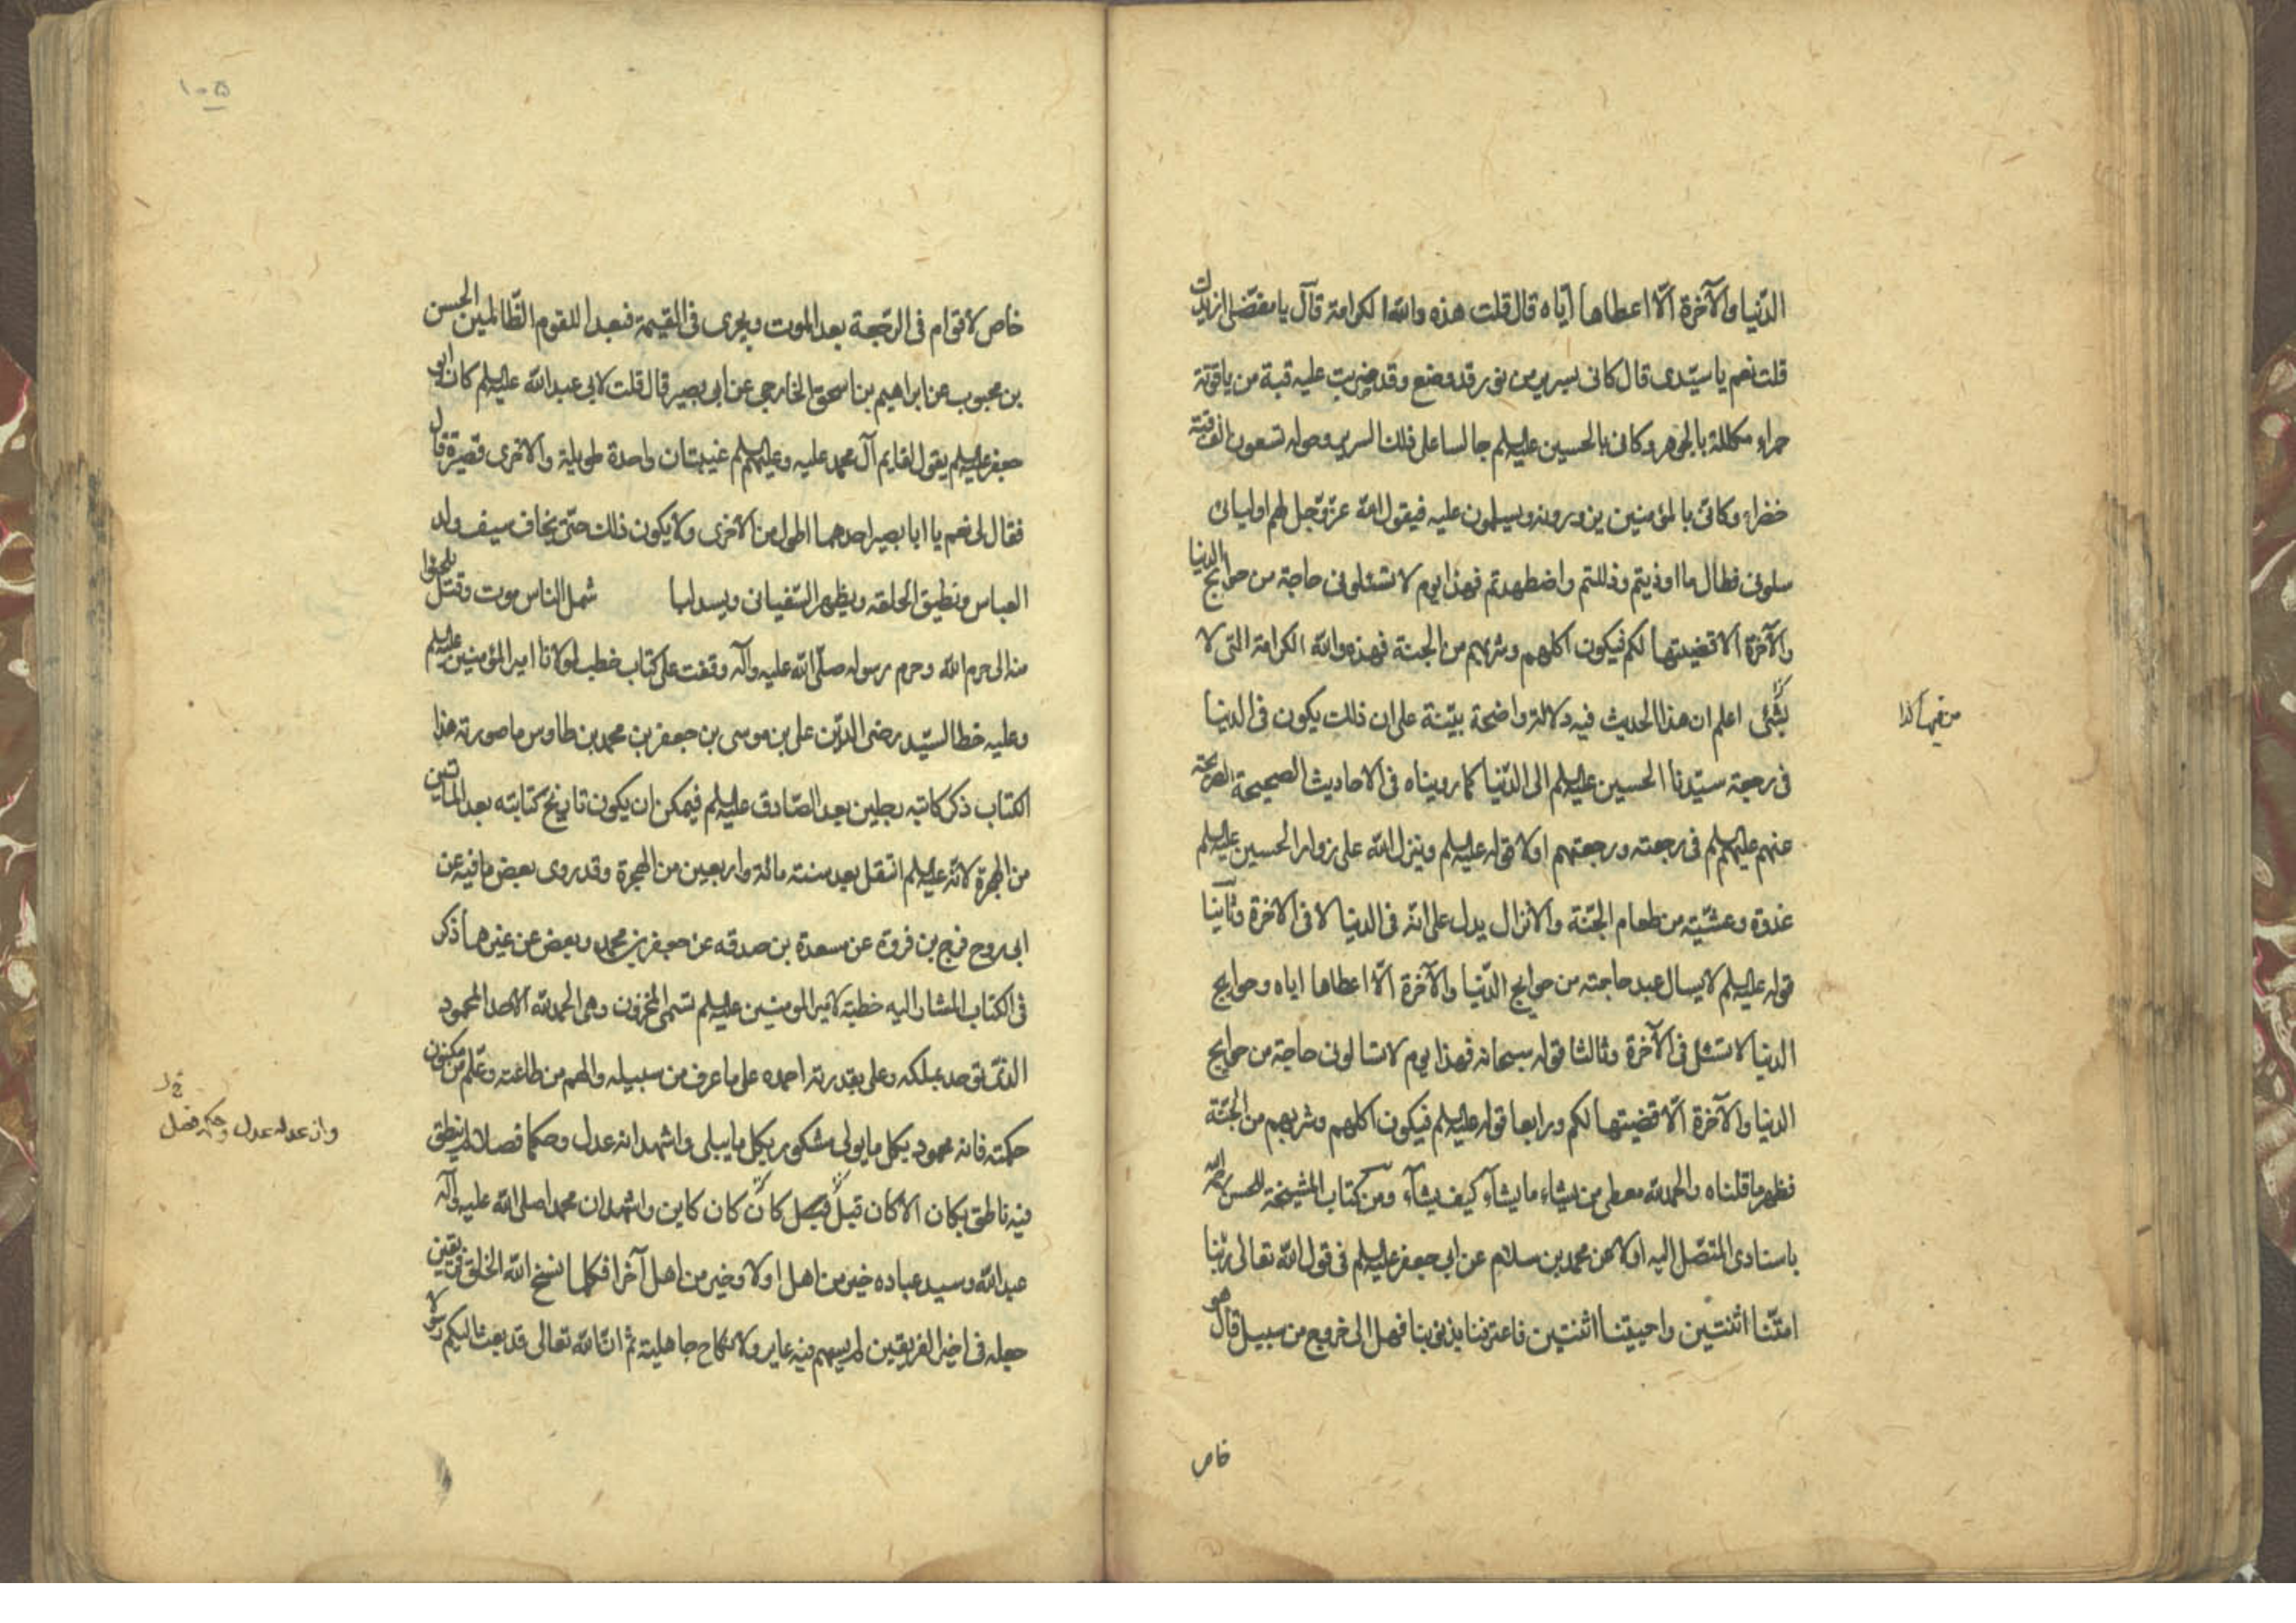 الدّنيا والآخرة الّا اعطاها ايّاه قال قلت هذه والله الكرامة قال يا مفضّل ازيدك
قلت نعم يا سيّدى قال كانى بسرير من نور قد وضع وقد ضربت عليه قبة من ياقوتة
حمراء مكللة بالجوهر وكانى بالحسين عليه السلم جالسا على ذلك السرير وحوله تسعون الف قبة
خضراء وكانى بالمؤمنين يزورونه ويسلمون عليه فيقول الله عزّ وجل لهم اوليائى
سلونى فطال ما اوذيتم وذللتم واضطهدتم فهذا يوم لا تسئلونى حاجة من حوايج الدنيا
والآخرة الا قضيتها لكم فيكون اكلهم وشربهم من الجنة فهذه والله الكرامة التى لا
يشبهها شئ اعلم ان هذا الحديث فيه دلالة واضحة بيّنة على ان ذلك يكون فى الدنيا
فى رجعة سيّدنا الحسين عليه السلم الى الدّنيا كما رويناه فى الاحاديث الصحيحة الصريحة
عنهم عليهم السلم فى رجعته ورجعتهم اولا قوله عليه السلم وينزل الله على زوار الحسين عليه السلم
غدوة وعشيّة من طعام الجنّة والانزال يدل على انه فى الدنيا لا فى الاخرة وثانيا
قوله عليه السلم لا يسال عبد حاجته من حوايج الدّنيا والآخرة الّا اعطاها اياه وحوايج
الدنيا لا تسئل فى الآخرة وثالثا قوله سبحانه فهذا يوم لا تسالونى حاجة من حوايج
الدنيا والآخرة الّا قضيتها لكم ورابعا قوله عليه السلم فيكون اكلهم وشربهم من الجنّة
فظهر ما قلناه والحمد لله معطى من يشاء ما يشاء كيف يشاء ومن كتاب المشيخة للحسن
باسنادى المتصّل اليه اولا عن محمد بن سلام عن ابى جعفر عليه السلم فى قول الله تعالى ربّنا
امتّنا اثنتين واحييتنا اثنتين فاعترفنا بذنوبنا فهل الى خروج من سبيل قال هو
خاص
خاص لاقوام فى الرّجعة بعد الموت ويجرى فى القيمة فبعدا للقوم الظّالمين الحسن
بن محبوب عن ابراهيم بن اسحق الخارجى عن ابى بصير قال قلت لابى عبد الله عليه السلم كان ابو
جعفر عليه السلم يقول لقايم آل محمد عليه وعليهم السلم غيبتان واحدة طويلة والاخرى قصيرة قال
فقال لى نعم يا ابا بصير احدهما اطول من الاخرى ولا يكون ذلك حتّى يخاف سيف ولد
العباس وتضيق الحلقه ويظهر السّفيانى ويشد البلا شمل الناس موت وقتل يلجئوا
منه الى حرم الله وحرم رسوله صلّى الله عليه وآله وقفت على كتاب خطب لمولانا امير المؤمنين عليه السلم
وعليه خط السيّد رضى الدّين على بن موسى بن جعفر بن محمد بن طاوس ما صورته هذا
الكتاب ذكر كاتبه رجلين بعد الصّادق عليه السلم فيمكن ان يكون تاريخ كتابته بعد الماتين
من الهجرة لانّه عليه السلم انتقل بعد سنة مائة واربعين من الهجرة وقد روى بعض ما فيه عن
ابى روح فرج بن فروة عن مسعدة بن صدقه عن جعفر بن محمد وبعض عن غيرهما ذكر
فى الكتاب المشار اليه خطبة لامير المومنين عليه السلم تسمى المخزون وهى الحمد لله الاحد المحمود
الذى توحد بملكه وعلى بقدرته احمده على ما عرف من سبيله والهم من طاعته وعلّم من مكنون
حكمته فانه محمود بكل ما يولى مشكور بكل ما يبلى واشهد ان قوله عدل وحكمه فصل لم ينطق
فيه ناطق بكان الا كان قبل كان كاين واشهد ان محمدا صلى الله عليه وآله
عبد الله وسيد عباده خير من اهل اولا وخير من اهل آخرا فكلما نسخ الله الخلق فريقين
جعله فى اخير الفريقين لم يسهم فيه عاير ولا نكاح جاهلية ثم انّ الله تعالى قد بعث اليكم رسولا
وان عدله عدل وحكمه فصل